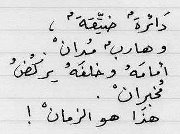 دَائرةٌ ضيّقةٌ ،
وهاربٌ مُدان .
أمامَهُ وخلفَهُ يركُضُ
مُخبِران .
هذا هو الزمان !